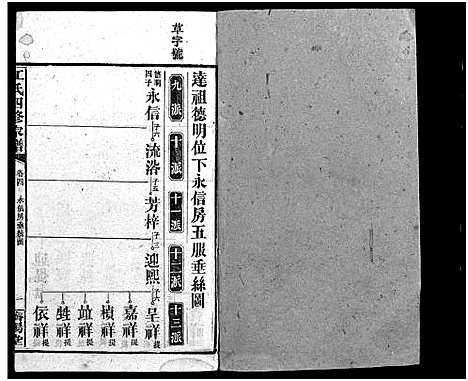 草字號
達祖德明位下永信房五服垂絲圖
九派 十派 十一派 十二派 十三派
德明四子 永信 子六 流浩 子五 芳梓 子三 迎熙 子六 呈祥 提
嘉祥 提
楨祥 提
並祥 提
甡祥 提
依祥 提
江氏四修家譜 卷四 永信房垂絲圖 一